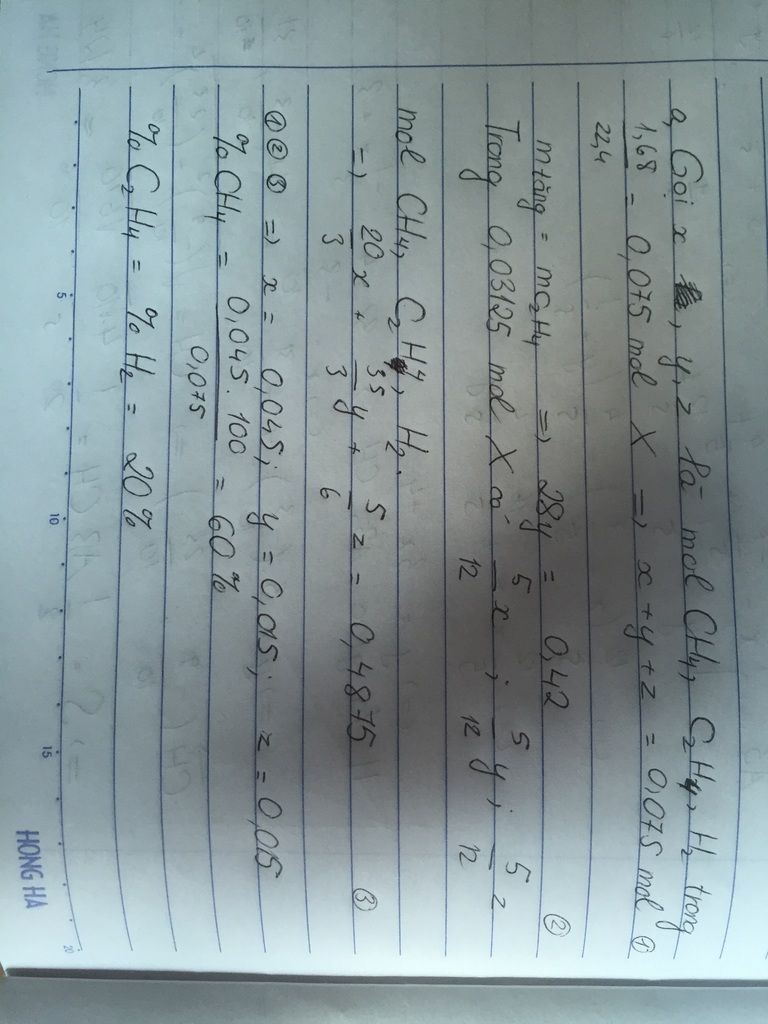 a, Gọi x , y, z là mol CH4, C2H4, H2 trong
1,68 / 22,4 = 0,075 mol X => x + y + z = 0,075 mol ①
m tăng = mC2H4 => 28y = 0,42 ②
Trong 0,03125 mol X có 5/12 x ; 5/12 y ; 5/12 z
mol CH4, C2H4, H2.
=> 20/3 x + 35/3 y + 5/6 z = 0,4875 ③
① ② ③ => x = 0,045; y = 0,015; z = 0,015
% CH4 = 0,045.100 / 0,075 = 60%
% C2H4 = % H2 = 20%
5 10 15 20
HONG HA